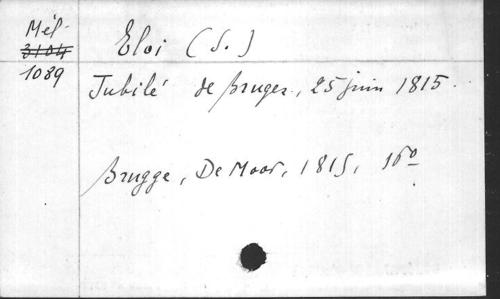 Mél.
3104
1089
Eloi (S.)
Jubilé de Bruges, 25 juin 1815.
Brugge, De Moor, 1815, 16º